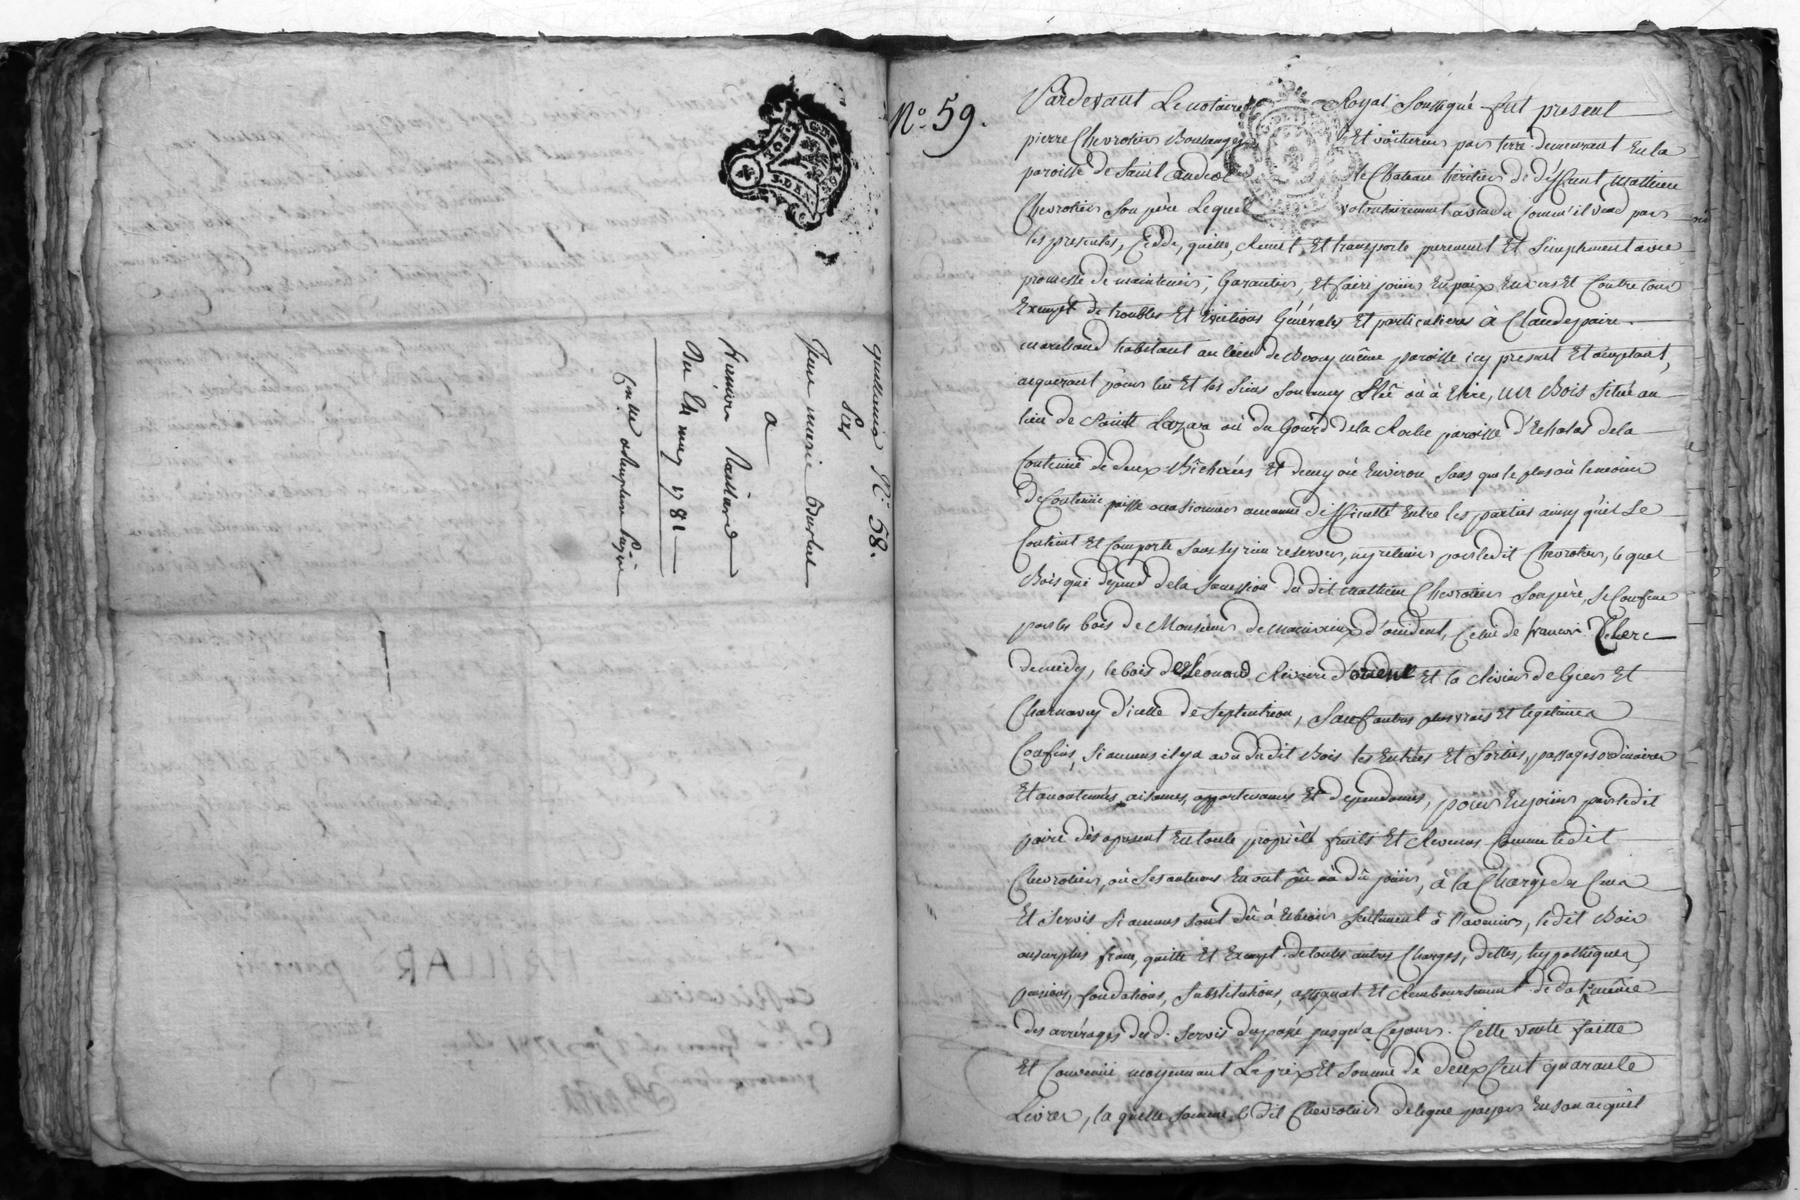 quittance N.º 58.
Par
Jean marie
a
Du 6 may 1781
Nº. 59.
Pardevant Le notaire Royal Soussigné fut present
pierre Chevrotier Boulanger Et voiturier par terre demeurant En la
paroisse de Saint andeol le Chateau héritier de déffunt Mathieu
Chevrotier Son père Lequel volontairement a vendu Comm'il vend par
les presentes, Cedde, quitte, Remet, Et transporte purement Et Simplement avec
promesse de maintenir, Garantir, Et faire jouir En paix Envers Et Contre tous
Exempt de troubles Et Evictions Générales Et particulieres à Claude paire
marchand habitant au lieu de même paroisse icy present Et acceptant,
acquerant pour lui Et les Siens Son amy Elû où à Elire, un Bois Situé au
lieu de Saint Lazare où du Gourd de la Roche paroisse d'Echalas de la
Contenüe de deux Bicherées Et demy où Environ Sans que le plus où le moins
de Contenüe puisse occasionner aucunne difficulté Entre les parties ainsy qu'il Se
Contient Et Comporte Sans sy rien reserver, ny retenir par ledit Chevrotier, lequel
Bois qui dépend de la Succession du dit Mathieu Chevrotier Son père, Se Confine
par les bois de Monsieur de d'occident, Celui de francois
de midy, le bois de Léonard Riviere d'orient Et la Riviere de Giers Et
d'icelle de Septentrion, Sauf autres plus vrais Et legitimes
Confins, Si aucuns il y a avec du dit Bois les Entrées Et Sorties, passages ordinaires
Et accoutumés, aisances, appartenances Et dependances, pour En jouir par ledit
paire dès apresent En toute propriété fruits Et Revenus Comme ledit
Chevrotier, où Ses auteurs En ont où dû jouir, à la Charge des Cens
Et Servis Si aucuns Sont dû à Echoir Seulement à l'avenir, le dit Bois
au surplus franc, quitte Et Exempt de toutes autres Charges, dettes, hypothèques,
pensions, fondations, Substitutions, assignat Et Remboursement de dot même
des arrérages du d. Servis du passé jusqu'a Ce jour. Cette vente faitte
Et Convenüe moyennant Le prix Et Somme de Deux Cent quarante
Livres, la quelle Somme le dit Chevrotier delegue payer En Son acquit